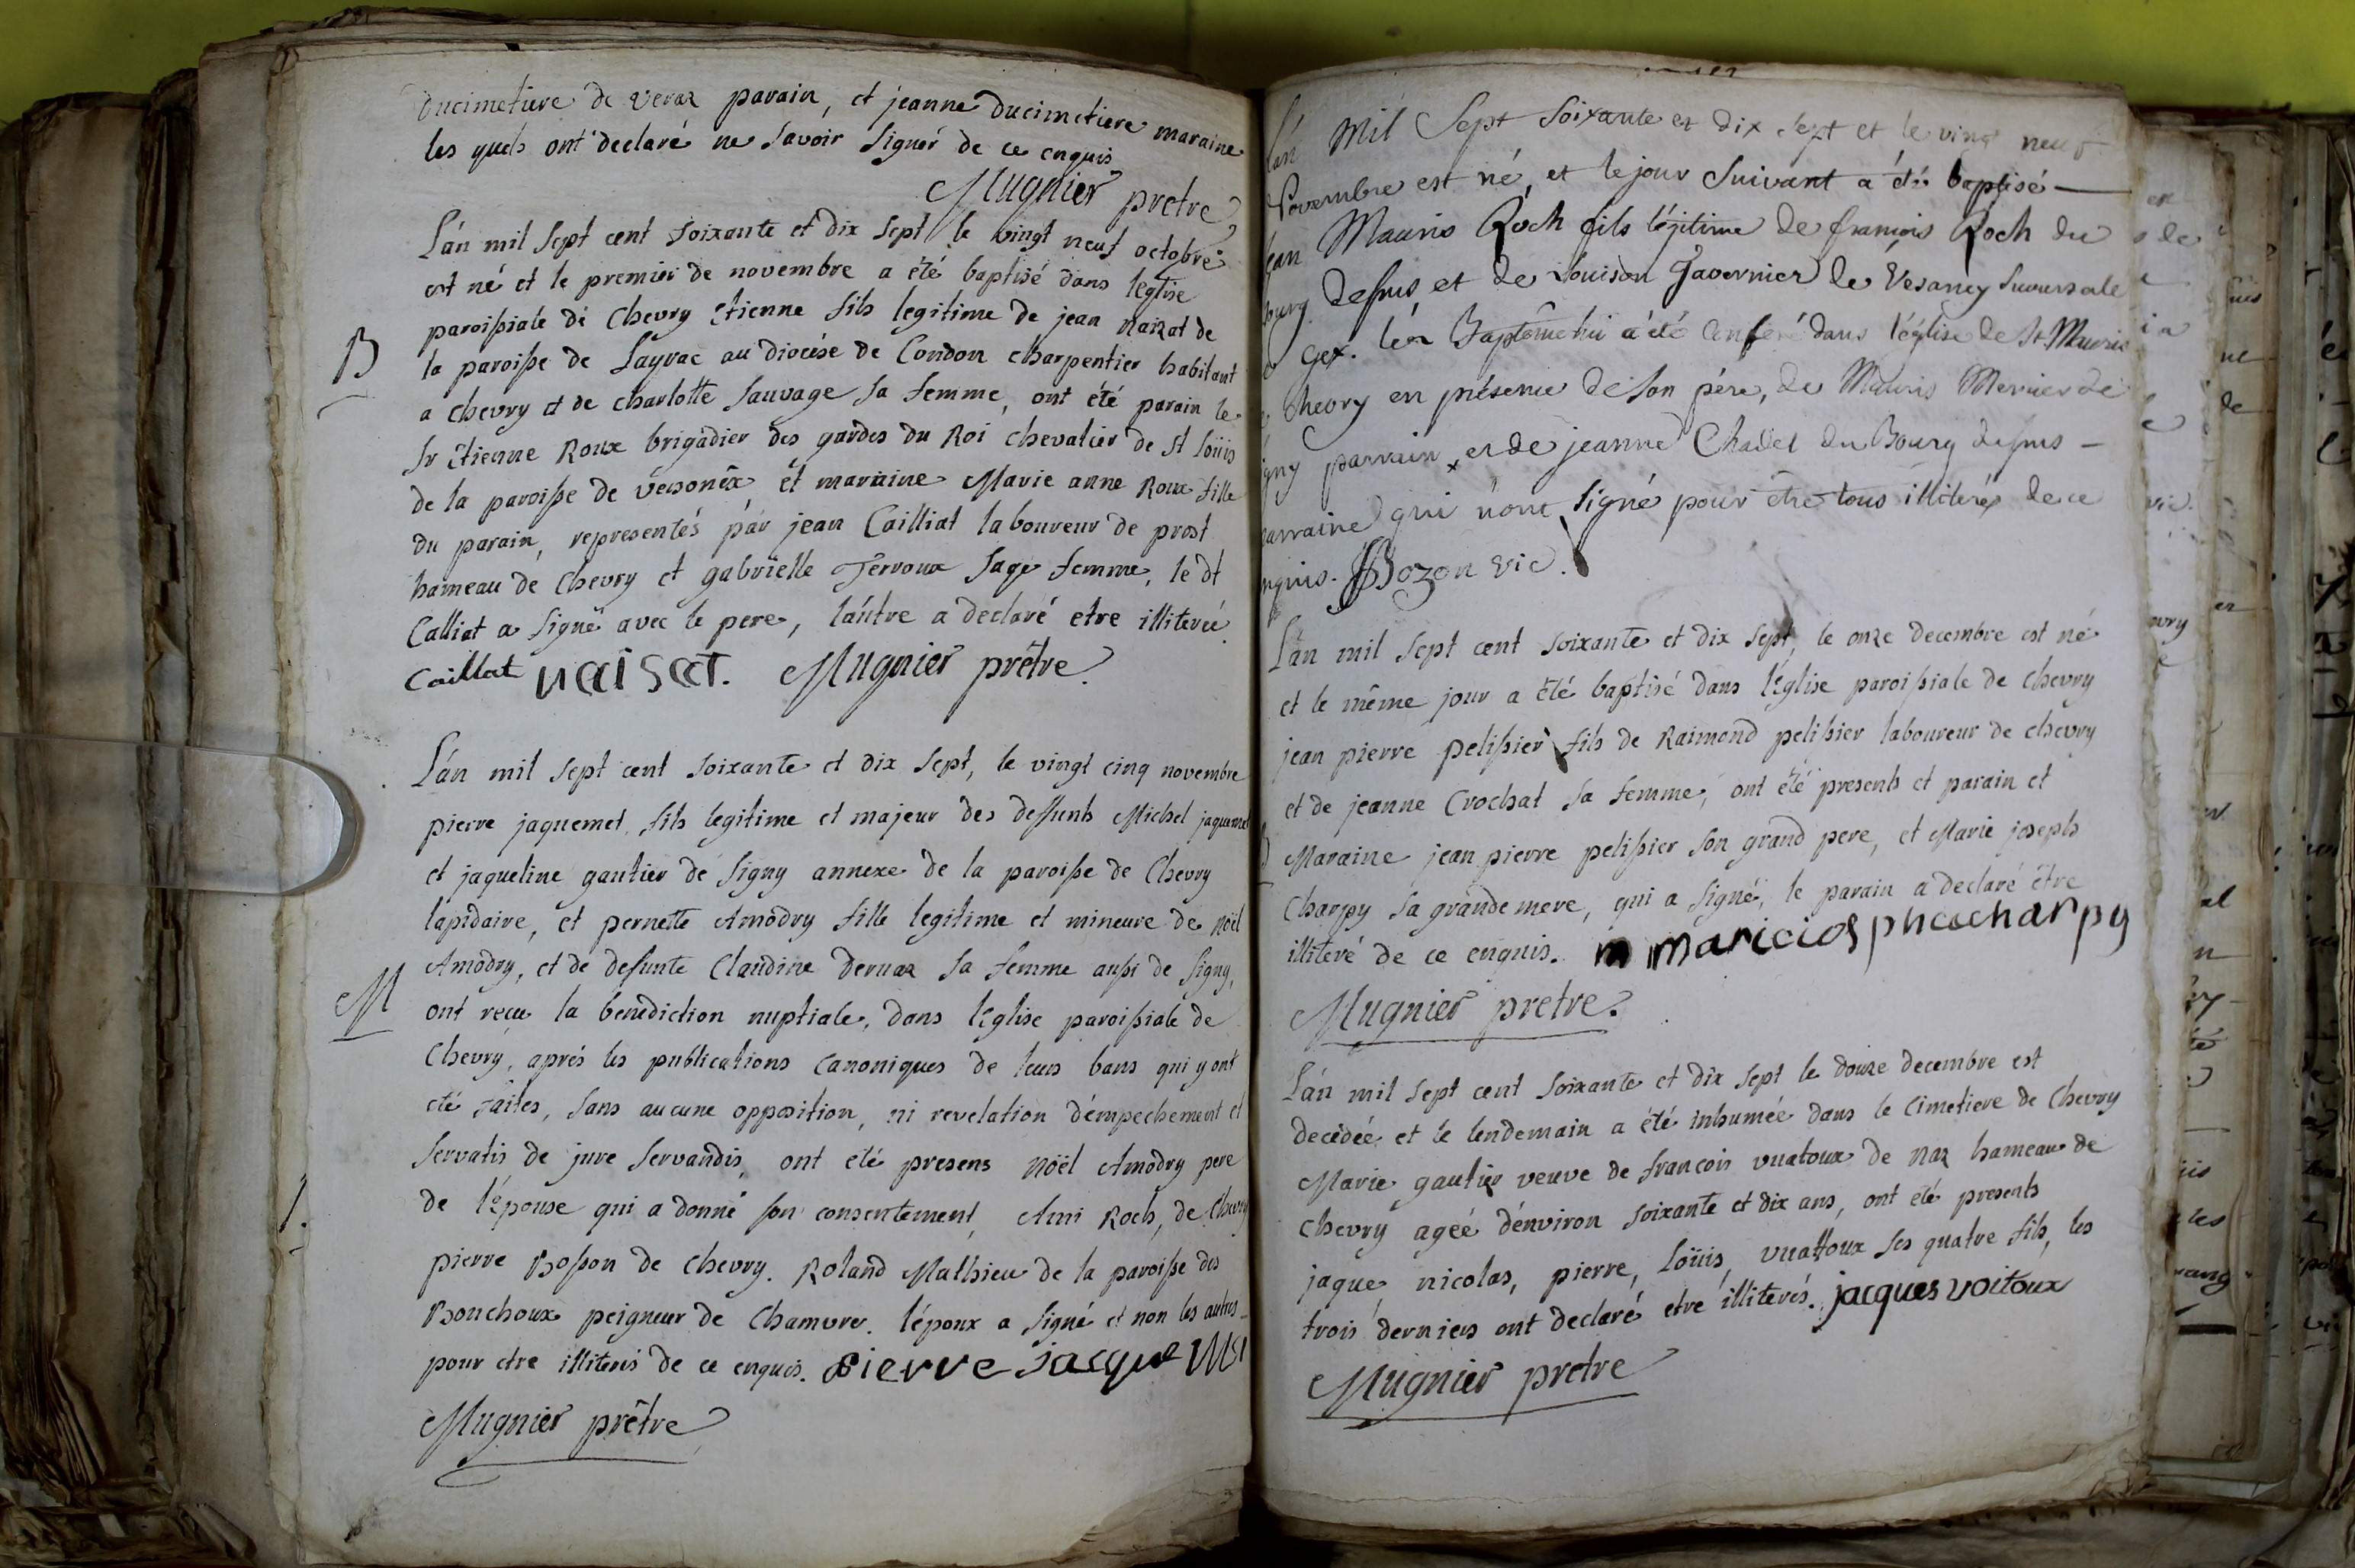 Ducimetiere de veraz parain, et jeanne Ducimetiere maraine
les quels ont declaré ne Savoir Signer de ce enquis
Mugnier pretre
L'an mil Sept cent Soixante et dix Sept le vingt neuf octobre
est né et le premier de novembre a été baptisé dans leglise
paroissiale de Chevry Etienne fils legitime de jean naizat de
B
la paroisse de Layrac au diocése de Condon charpentier habitant
a chevry et de charlotte Sauvage Sa femme, ont été parain le
Sr Etienne Roux brigadier des gardes du Roi chevalier de St Loüis
de la paroisse de versonéx, et maraine Marie anne Roux fille
du parain, representés par jean Cailliat laboureur de prost
hameau de Chevry et gabrielle Tervoux Sage femme, le dt
Calliat a Signé avec le pere, lautre a declaré etre illiterée
Caillat naisat. Mugnier prêtre
L'an mil Sept cent Soixante et dix Sept, le vingt cinq novembre
pierre jaquemet fils legitime et majeur des deffunts Michel jaquemet
et jaqueline gautier de Signy annexe de la paroisse de Chevry
lapidaire, et pernette Amodry fille legitime et mineure de noël
Amodry, et de defunte Claudine Deruaz Sa femme aussi de Signy,
M
ont reçu la benediction nuptiale, dans l'Eglise paroissiale de
Chevry, aprés les publications Canoniques de leurs bans qui y ont
eté faites, Sans aucune opposition, ni revelation d'émpechement et
Servatis de jure Servandis, ont eté presens noël Amodry pere
1.
de l'épouse qui a donné son consentement, Ami Roch, de Chevry
pierre Bosson de Chevry. Roland Mathieu de la paroisse des
Bouchoux peigneur de Chamvre. l'époux a Signé et non les autres
pour etre illiterés de ce enquis. Pierre jacquemet
Mugnier prêtre
L'an Mil Sept Soixante et dix Sept et le vingt neuf
Novembre est né, et le jour Suivant a été baptisé
jean Mauris Roch fils légitime de françois Roch du
bourg desus et de Louison Tavernier de Vesancy Succursale
de Gex. le Baptême lui a été Conféré dans l'église de St Mauris
de Chevry en présence de Son pére, de Mauris Mercier de
Signy parrain et de jeanne Chadel du Bourg desus
marraine qui n'ont Signé pour être tous illiterés de ce
enquis. Bozon vic.
L'an mil Sept cent Soixante et dix Sept, le onze decembre est né
et le même jour a été baptisé dans l'Eglise paroissiale de Chevry
jean pierre pelissier fils de Raimond pelissier laboureur de chevry
et de jeanne Crochat Sa femme, ont été presents et parain et
Maraine jean pierre pelissier Son grand pere, et Marie joseph
Charpy Sa grande mere, qui a Signé, le parain a declaré être
illiteré de ce enquis. m marieiosphecharpy
Mugnier pretre
L'an mil Sept cent Soixante et dix Sept le douze decembre est
decédée et le lendemain a été inhumée dans le Cimetiere de Chevry
Marie gautier veuve de francois vuatoux de naz hameau de
Chevry agée d'énviron Soixante et dix ans, ont été presents
jaque nicolas, pierre, Loüis, vuattoux Ses quatre fils, les
trois derniers ont declaré etre illiterés. jacques voitoux
Mugnier pretre